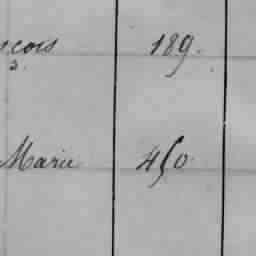 scois 189.
2.
Marie 450